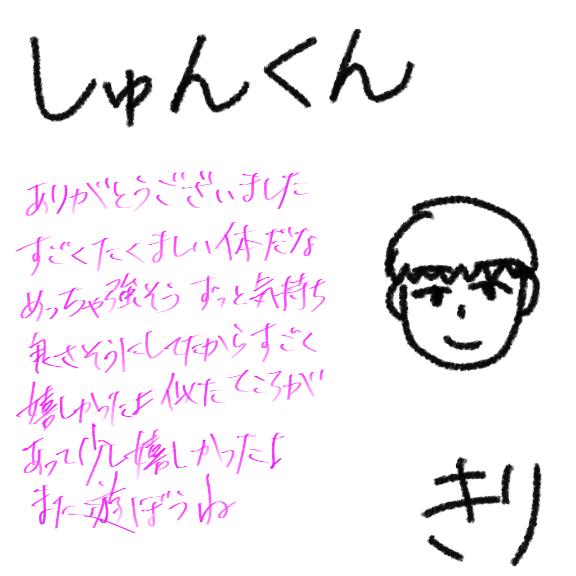 しゅんくん
ありがとうございました
すごくたくましい体だな
めっちゃ強そう ずっと気持ち
良さそうにしてたからすごく
嬉しかったよ 似たところが
あって少し嬉しかったよ
また遊ぼうね
きり